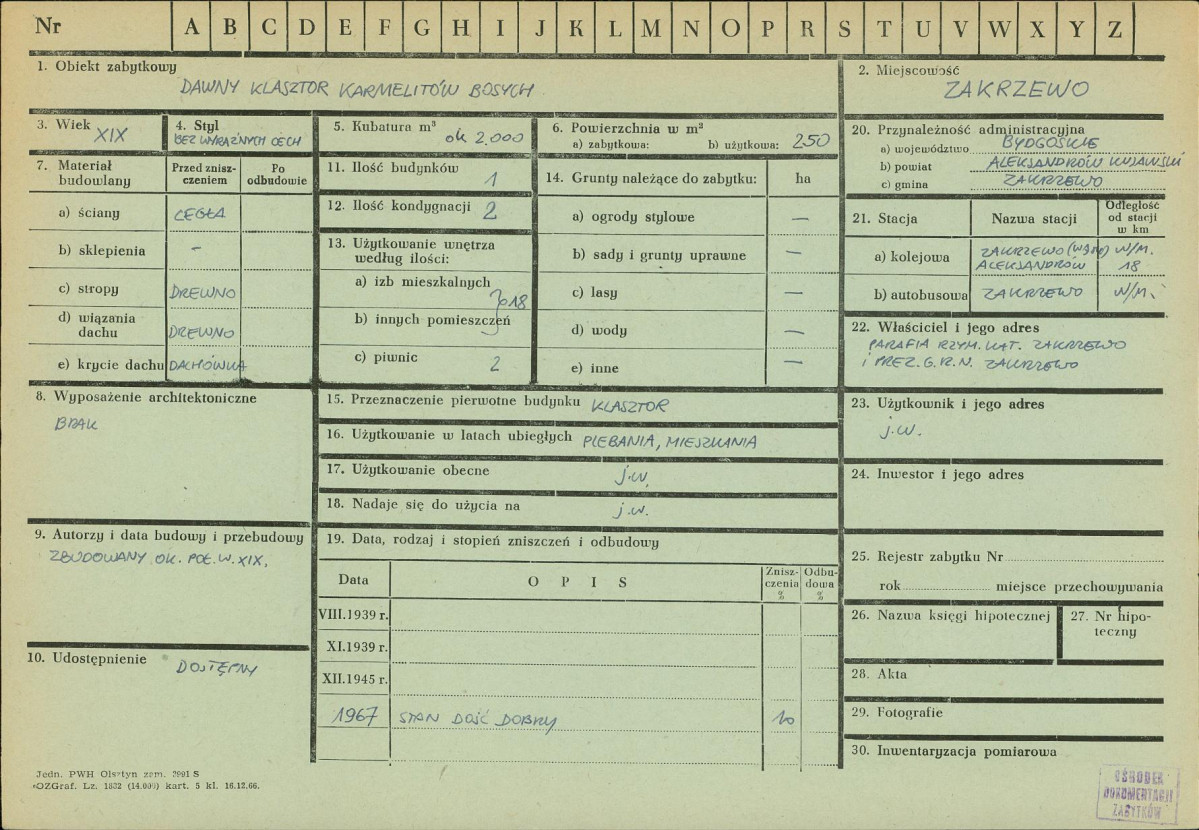 Nr A B C D E F G H I J K L M N O P R S T U V W X Y Z
1. Obiekt zabytkowy
DAWNY KLASZTOR KARMELITÓW BOSYCH
2. Miejscowość
ZAKRZEWO
3. Wiek
XIX
4. Styl
BEZ WYRAŹNYCH CECH
5. Kubatura m³
ok 2.000
6. Powierzchnia w m²
a) zabytkowa: b) użytkowa: 250
7. Materiał budowlany
Przed znisz-
czeniem
Po
odbudowie
a) ściany CEGŁA
b) sklepienia –
c) stropy DREWNO
d) wiązania
dachu DREWNO
e) krycie dachu DACHÓWKA
11. Ilość budynków 1
12. Ilość kondygnacji 2
13. Użytkowanie wnętrza
według ilości:
a) izb mieszkalnych
18
b) innych pomieszczeń
c) piwnic 2
14. Grunty należące do zabytku: ha
a) ogrody stylowe —
b) sady i grunty uprawne —
c) lasy —
d) wody —
e) inne —
20. Przynależność administracyjna
a) województwo BYDGOSKIE
b) powiat ALEKSANDRÓW KUJAWSKI
c) gmina ZAKRZEWO
21. Stacja Nazwa stacji
Odległość
od stacji
w km
a) kolejowa ZAKRZEWO (WĄSK) W/M.
ALEKSANDRÓW 18
b) autobusowa ZAKRZEWO W/M.
22. Właściciel i jego adres
PARAFIA RZYM. KAT. ZAKRZEWO
I PREZ. G.R.N. ZAKRZEWO
8. Wyposażenie architektoniczne
BRAK
15. Przeznaczenie pierwotne budynku KLASZTOR
16. Użytkowanie w latach ubiegłych PLEBANIA, MIESZKANIA
17. Użytkowanie obecne j.w.
18. Nadaje się do użycia na j.w.
23. Użytkownik i jego adres
j.w.
24. Inwestor i jego adres
9. Autorzy i data budowy i przebudowy
ZBUDOWANY OK. POŁ. W. XIX.
10. Udostępnienie DOSTĘPNY
19. Data, rodzaj i stopień zniszczeń i odbudowy
Data OPIS
Znisz-
czenia
%
Odbu-
dowa
%
VIII.1939 r.
XI.1939 r.
XII.1945 r.
1967 STAN DOŚĆ DOBRY 10
25. Rejestr zabytku Nr
rok miejsce przechowywania
26. Nazwa księgi hipotecznej
27. Nr hipo-
teczny
28. Akta
29. Fotografie
30. Inwentaryzacja pomiarowa
Jedn. PWH Olsztyn zam. 3991 S
OZGraf. Lz. 1832 (14.000) kart. 5 kl. 16.12.66.
OŚRODEK
DOKUMENTACJI
ZABYTKÓW